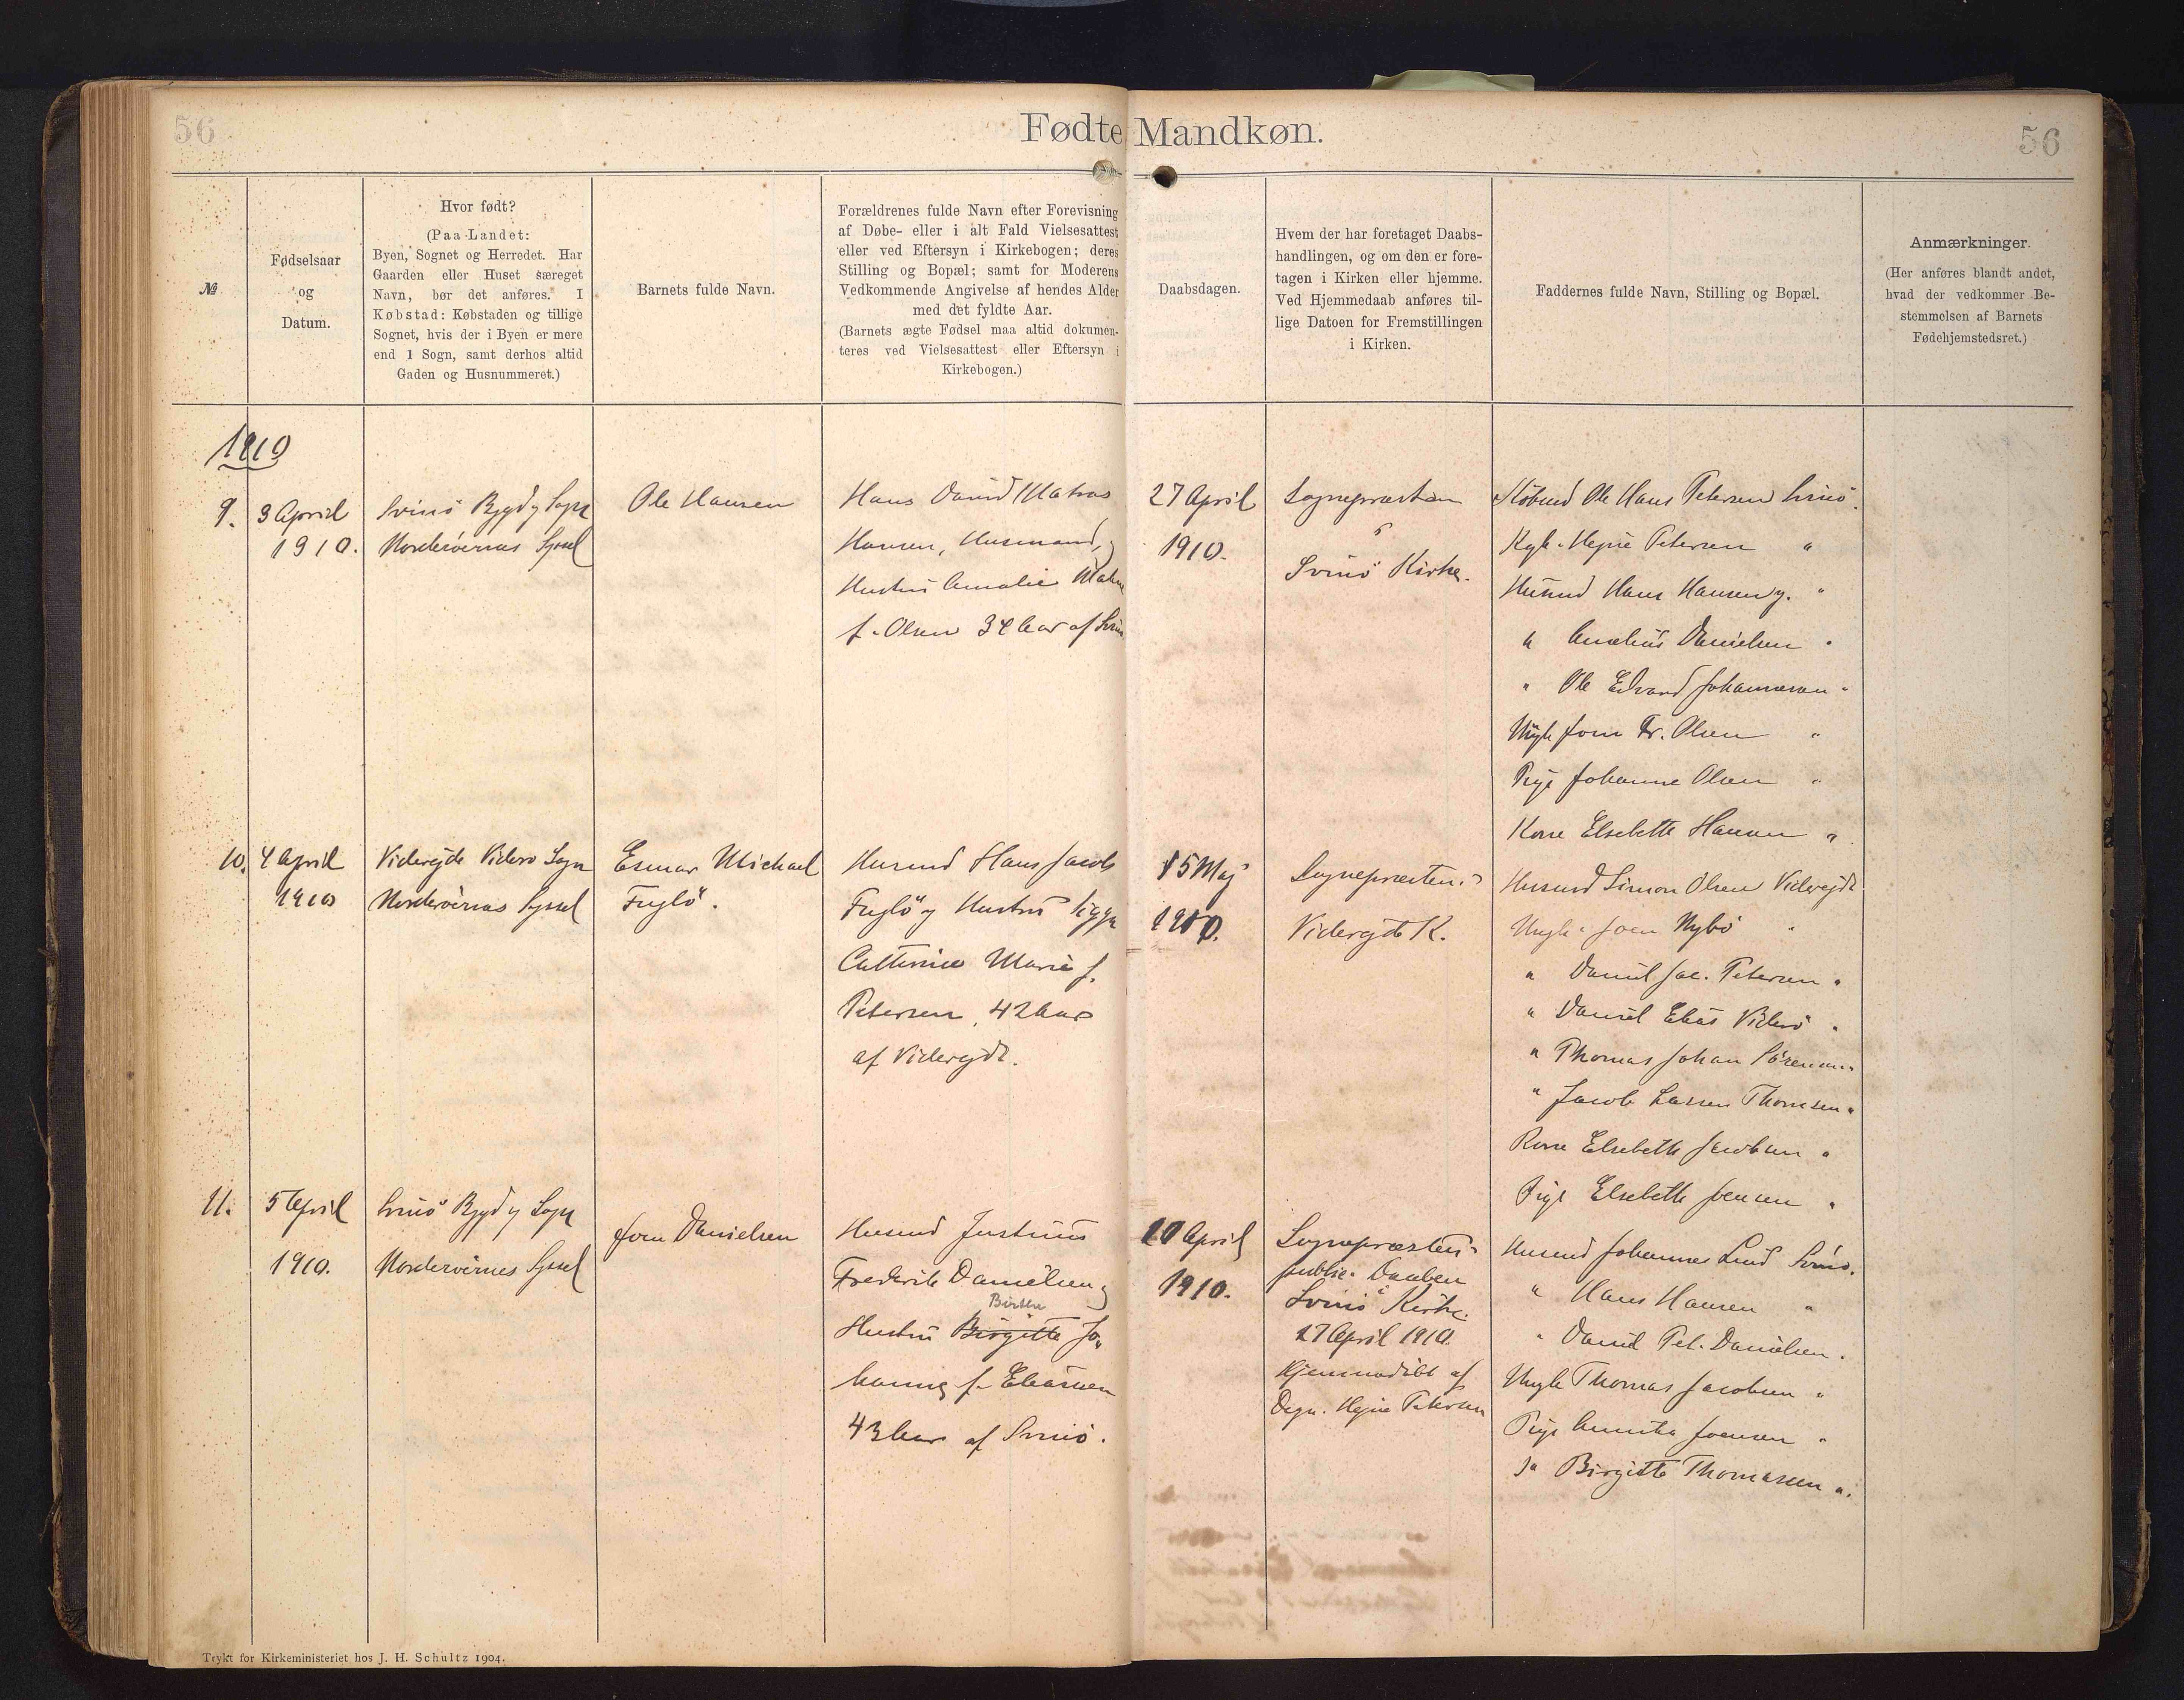 56
Fødte Mandkøn.
56
№
Fødselsaar
og
Datum.
Hvor født?
(Paa Landet:
Byen, Sognet og Herredet. Har
Gaarden eller Huset særeget
Navn, bør det anføres. I
Købstad: Købstaden og tillige
Sognet, hvis der i Byen er mere
end 1 Sogn, samt derhos altid
Gaden og Husnummeret.)
Barnets fulde Navn.
Forældrenes fulde Navn efter Forevisning
af Døbe- eller i alt Fald Vielsesattest
eller ved Eftersyn i Kirkebogen; deres
Stilling og Bopæl; samt for Moderens
Vedkommende Angivelse af hendes Alder
med det fyldte Aar.
(Barnets ægte Fødsel maa altid dokumen-
teres ved Vielsesattest eller Eftersyn i
Kirkebogen.)
Daabsdagen.
Hvem der har foretaget Daabs-
handlingen, og om den er fore-
tagen i Kirken eller hjemme.
Ved Hjemmedaab anføres til-
lige Datoen for Fremstillingen
i Kirken.
Faddernes fulde Navn, Stilling og Bopæl.
Anmærkninger.
(Her anføres blandt andet,
hvad der vedkommer Be-
stemmelsen af Barnets
Fødehjemstedsret.)
1910
9.
3 April
1910.
Svinö Bygd og Sogn
Norderöernes Syssel
Ole Hansen
Hans David Matras
Hansen, Husmand, og
Hustru Amalie
f. Olsen 34 Aar af Svinö
27 April
1910.
Sognepræsten
i
Svinö Kirke.
Ole Hans Petersen Svinö.
Heine Petersen "
Husmd Hans Hansen y. "
" Danielsen "
" Ole Edvard Johannesen "
Ungk Joen Fr. Olsen "
Pige Johanne Olsen "
Kone Elsebeth Hansen "
10.
4 April
1910
Videreide Viderö Sogn
Norderöernes Syssel
Esmar Michael
Fuglö.
Husmd Hans Jacob
Fuglö og Hustru Sigga
Cathrine Marie f.
Petersen, 42 Aar
af Videreide.
15 Maj
1910.
Sognepræsten i
Videreide K.
Husmd Simon Olsen Videreide
Ungk. Joen Nybö "
" Daniel Jac. Petersen "
" Daniel Elias Viderö "
" Thomas Johan Sörensen "
" Jacob Lassen Thomsen "
Kone Elsebeth Jacobsen "
Pige Elsebeth Joensen "
11.
5 April
1910.
Svinö Bygd og Sogn
Norderöernes Syssel
Joen Danielsen
Husmd Justinus
Frederik Danielsen og
Birthe
Hustru Birgitte Jo-
hanne f. Eliasen
43 Aar af Svinö.
10 April
1910.
Sognepræsten
public. Daaben
i
Svinö Kirke.
27 April 1910.
Hjemmedöbt af
Degn. Heine Petersen
Husmd Johannes Lind Svinö.
" Hans Hansen "
" Daniel Pet. Danielsen.
Ungk Thomas Jacobsen "
Pige Annika Joensen "
" Birgitte Thomasen ".
Trykt for Kirkeministeriet hos J. H. Schultz 1904.